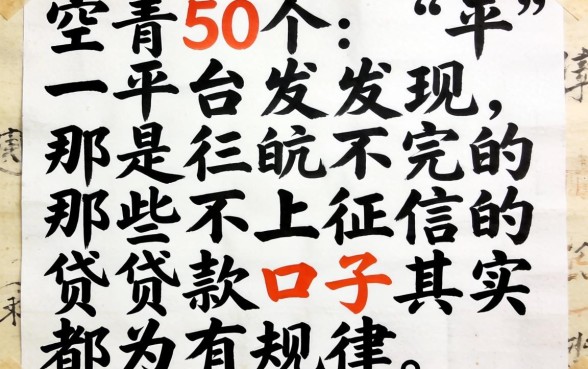 空青50个：“平”
一平台发发现，
那是 不完的
那些不上征信的
贷贷款口子其实
都为有规律。